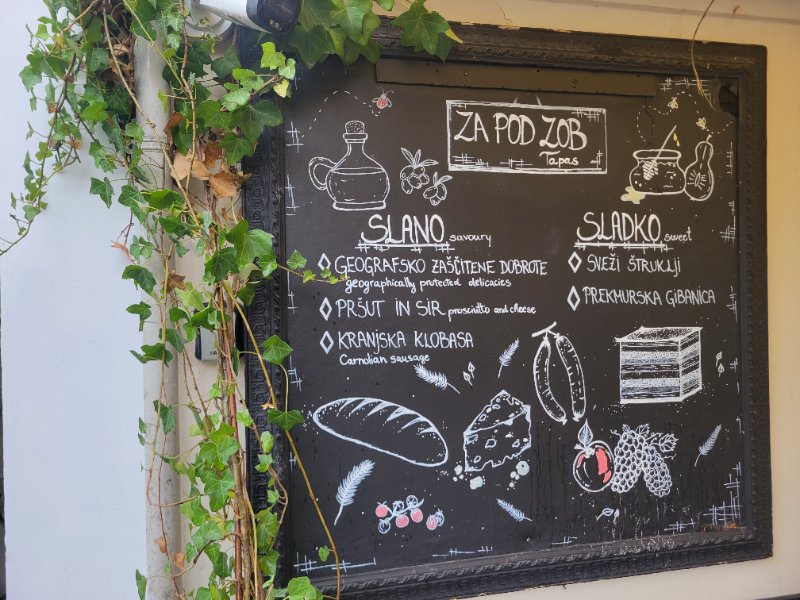 ZA POD ZOB
Tapas
SLANO savoury
GEOGRAFSKO ZAŠČITENE DOBROTE
geographically protected delicacies
PRŠUT IN SIR prosciutto and cheese
KRANJSKA KLOBASA
Carnolian sausage
SLADKO sweet
SVEŽI ŠTRUKLJI
PREKMURSKA GIBANICA